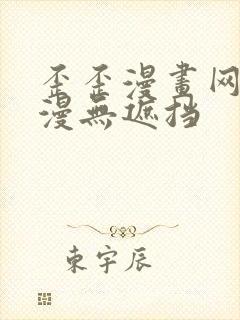 歪歪漫畫网
漫無遮挡
東宇辰